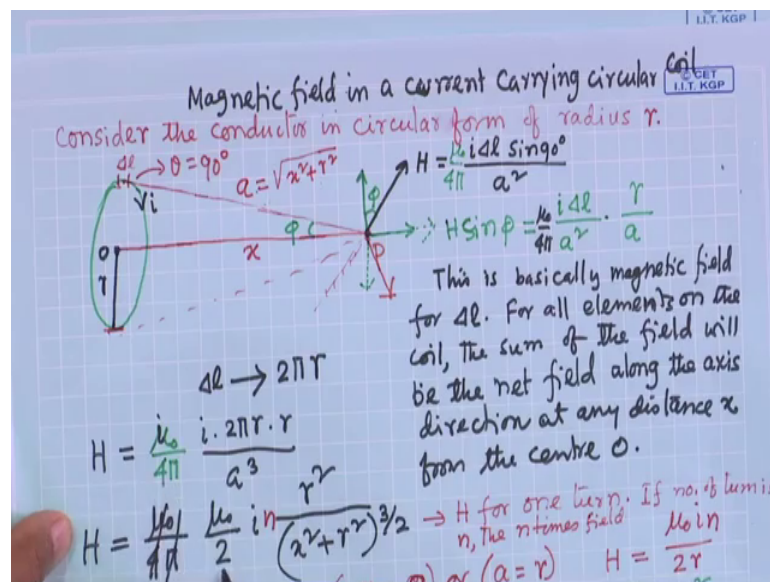 I.I.T. KGP
Magnetic field in a current carrying circular coil
© CET
I.I.T. KGP
Consider the conductor in circular form of radius r.
Δl → θ = 90°
i
a = √x²+r²
H = μ₀/4π iΔl sin90°/a²
φ
φ
H sin φ = μ₀/4π iΔl/a² · r/a
O
x
P
r
This is basically magnetic field
for Δl. For all elements on the
coil, the sum of the field will
be the net field along the axis
direction at any distance x
from the centre O.
Δl → 2πr
H = μ₀/4π i·2πr·r/a³
H = μ₀/2 in r²/(x²+r²)^3/2 → H for one turn. If no. of turn is
n, the n times field
or (a = r) H = μ₀in/2r